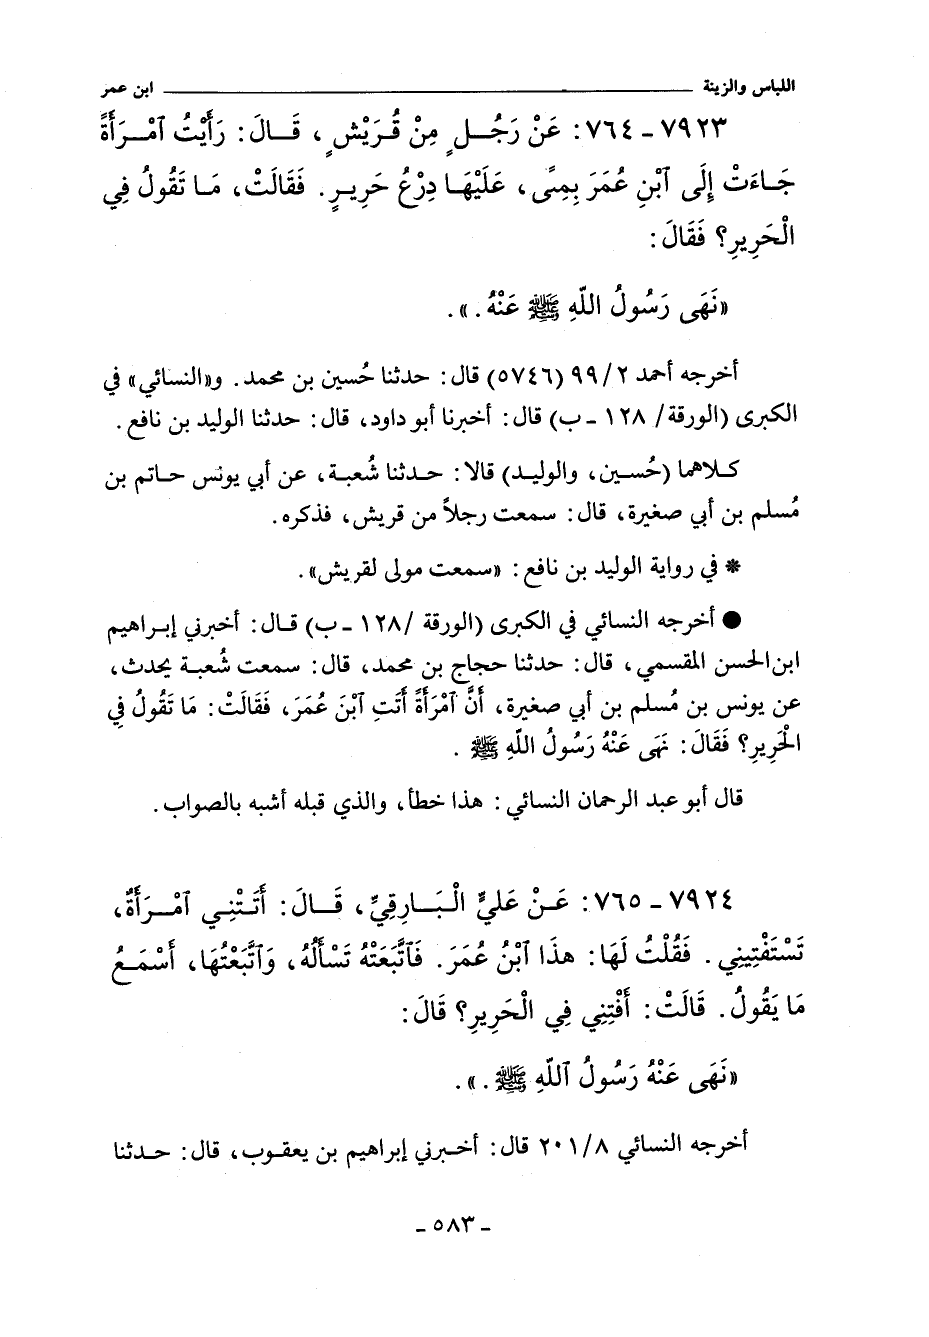 اللباس والزينة ــــــــــــــــــــــــــــــــ ابن عمر
٧٩٢٣ - ٧٦٤: عَنْ رَجُلٍ مِنْ قُرَيْشٍ، قَالَ: رَأَيْتُ ٱمْرَأَةً
جَاءَتْ إِلَى ٱبْنِ عُمَرَ بِمِنًى، عَلَيْهَا دِرْعُ حَرِيرٍ. فَقَالَتْ، مَا تَقُولُ فِي
الْحَرِيرِ؟ فَقَالَ:
«نَهَى رَسُولُ اللّهِ ﷺ عَنْهُ.».
أخرجه أحمد ٩٩/٢ (٥٧٤٦) قال: حدثنا حُسين بن محمد. و«النسائي» في
الكبرى (الورقة/ ١٢٨ - ب) قال: أخبرنا أبو داود، قال: حدثنا الوليد بن نافع.
كلاهما (حُسين، والوليد) قالا: حدثنا شُعبة، عن أبي يونس حاتم بن
مُسلم بن أبي صغيرة، قال: سمعت رجلاً من قريش، فذكره.
* في رواية الوليد بن نافع: «سمعت مولى لقريش».
● أخرجه النسائي في الكبرى (الورقة /١٢٨ - ب) قال: أخبرني إبراهيم
ابن الحسن المقسمي، قال: حدثنا حجاج بن محمد، قال: سمعت شُعبة يحدث،
عن يونس بن مُسلم بن أبي صغيرة، أَنَّ ٱمْرَأَةً أَتَتِ ٱبْنَ عُمَرَ، فَقَالَتْ: مَا تَقُولُ فِي
الْحَرِيرِ؟ فَقَالَ: نَهَى عَنْهُ رَسُولُ اللّهِ ﷺ.
قال أبو عبد الرحمان النسائي: هذا خطأ، والذي قبله أشبه بالصواب.
٧٩٢٤ - ٧٦٥: عَنْ عَلِيٍّ الْبَارِقِيِّ، قَالَ: أَتَتْنِي ٱمْرَأَةٌ،
تَسْتَفْتِينِي. فَقُلْتُ لَهَا: هذَا ٱبْنُ عُمَرَ. فَٱتَّبَعَتْهُ تَسْأَلُهُ، وَٱتَّبَعْتُهَا، أَسْمَعُ
مَا يَقُولُ. قَالَتْ: أَفْتِنِي فِي الْحَرِيرِ؟ قَالَ:
«نَهَى عَنْهُ رَسُولُ ٱللّهِ ﷺ.».
أخرجه النسائي ٢٠١/٨ قال: أخبرني إبراهيم بن يعقوب، قال: حدثنا
- ٥٨٣ -